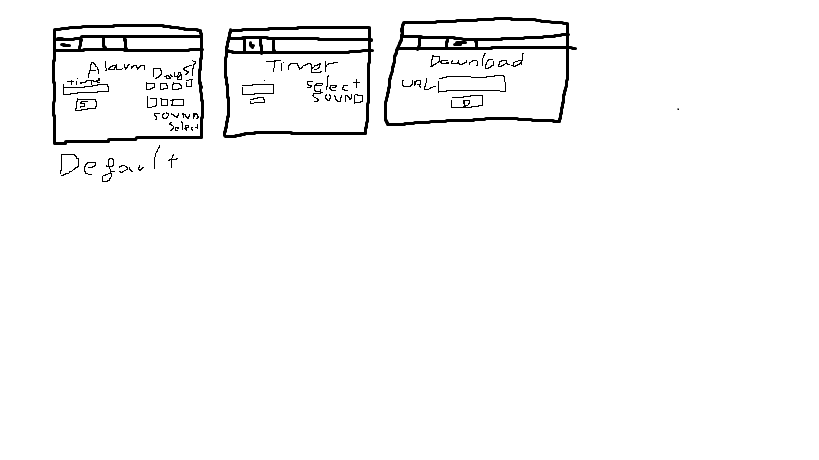 Alarm
time
Days?
S
SOUND
Select
Default
Timer
Select
SOUND
Download
URL
D